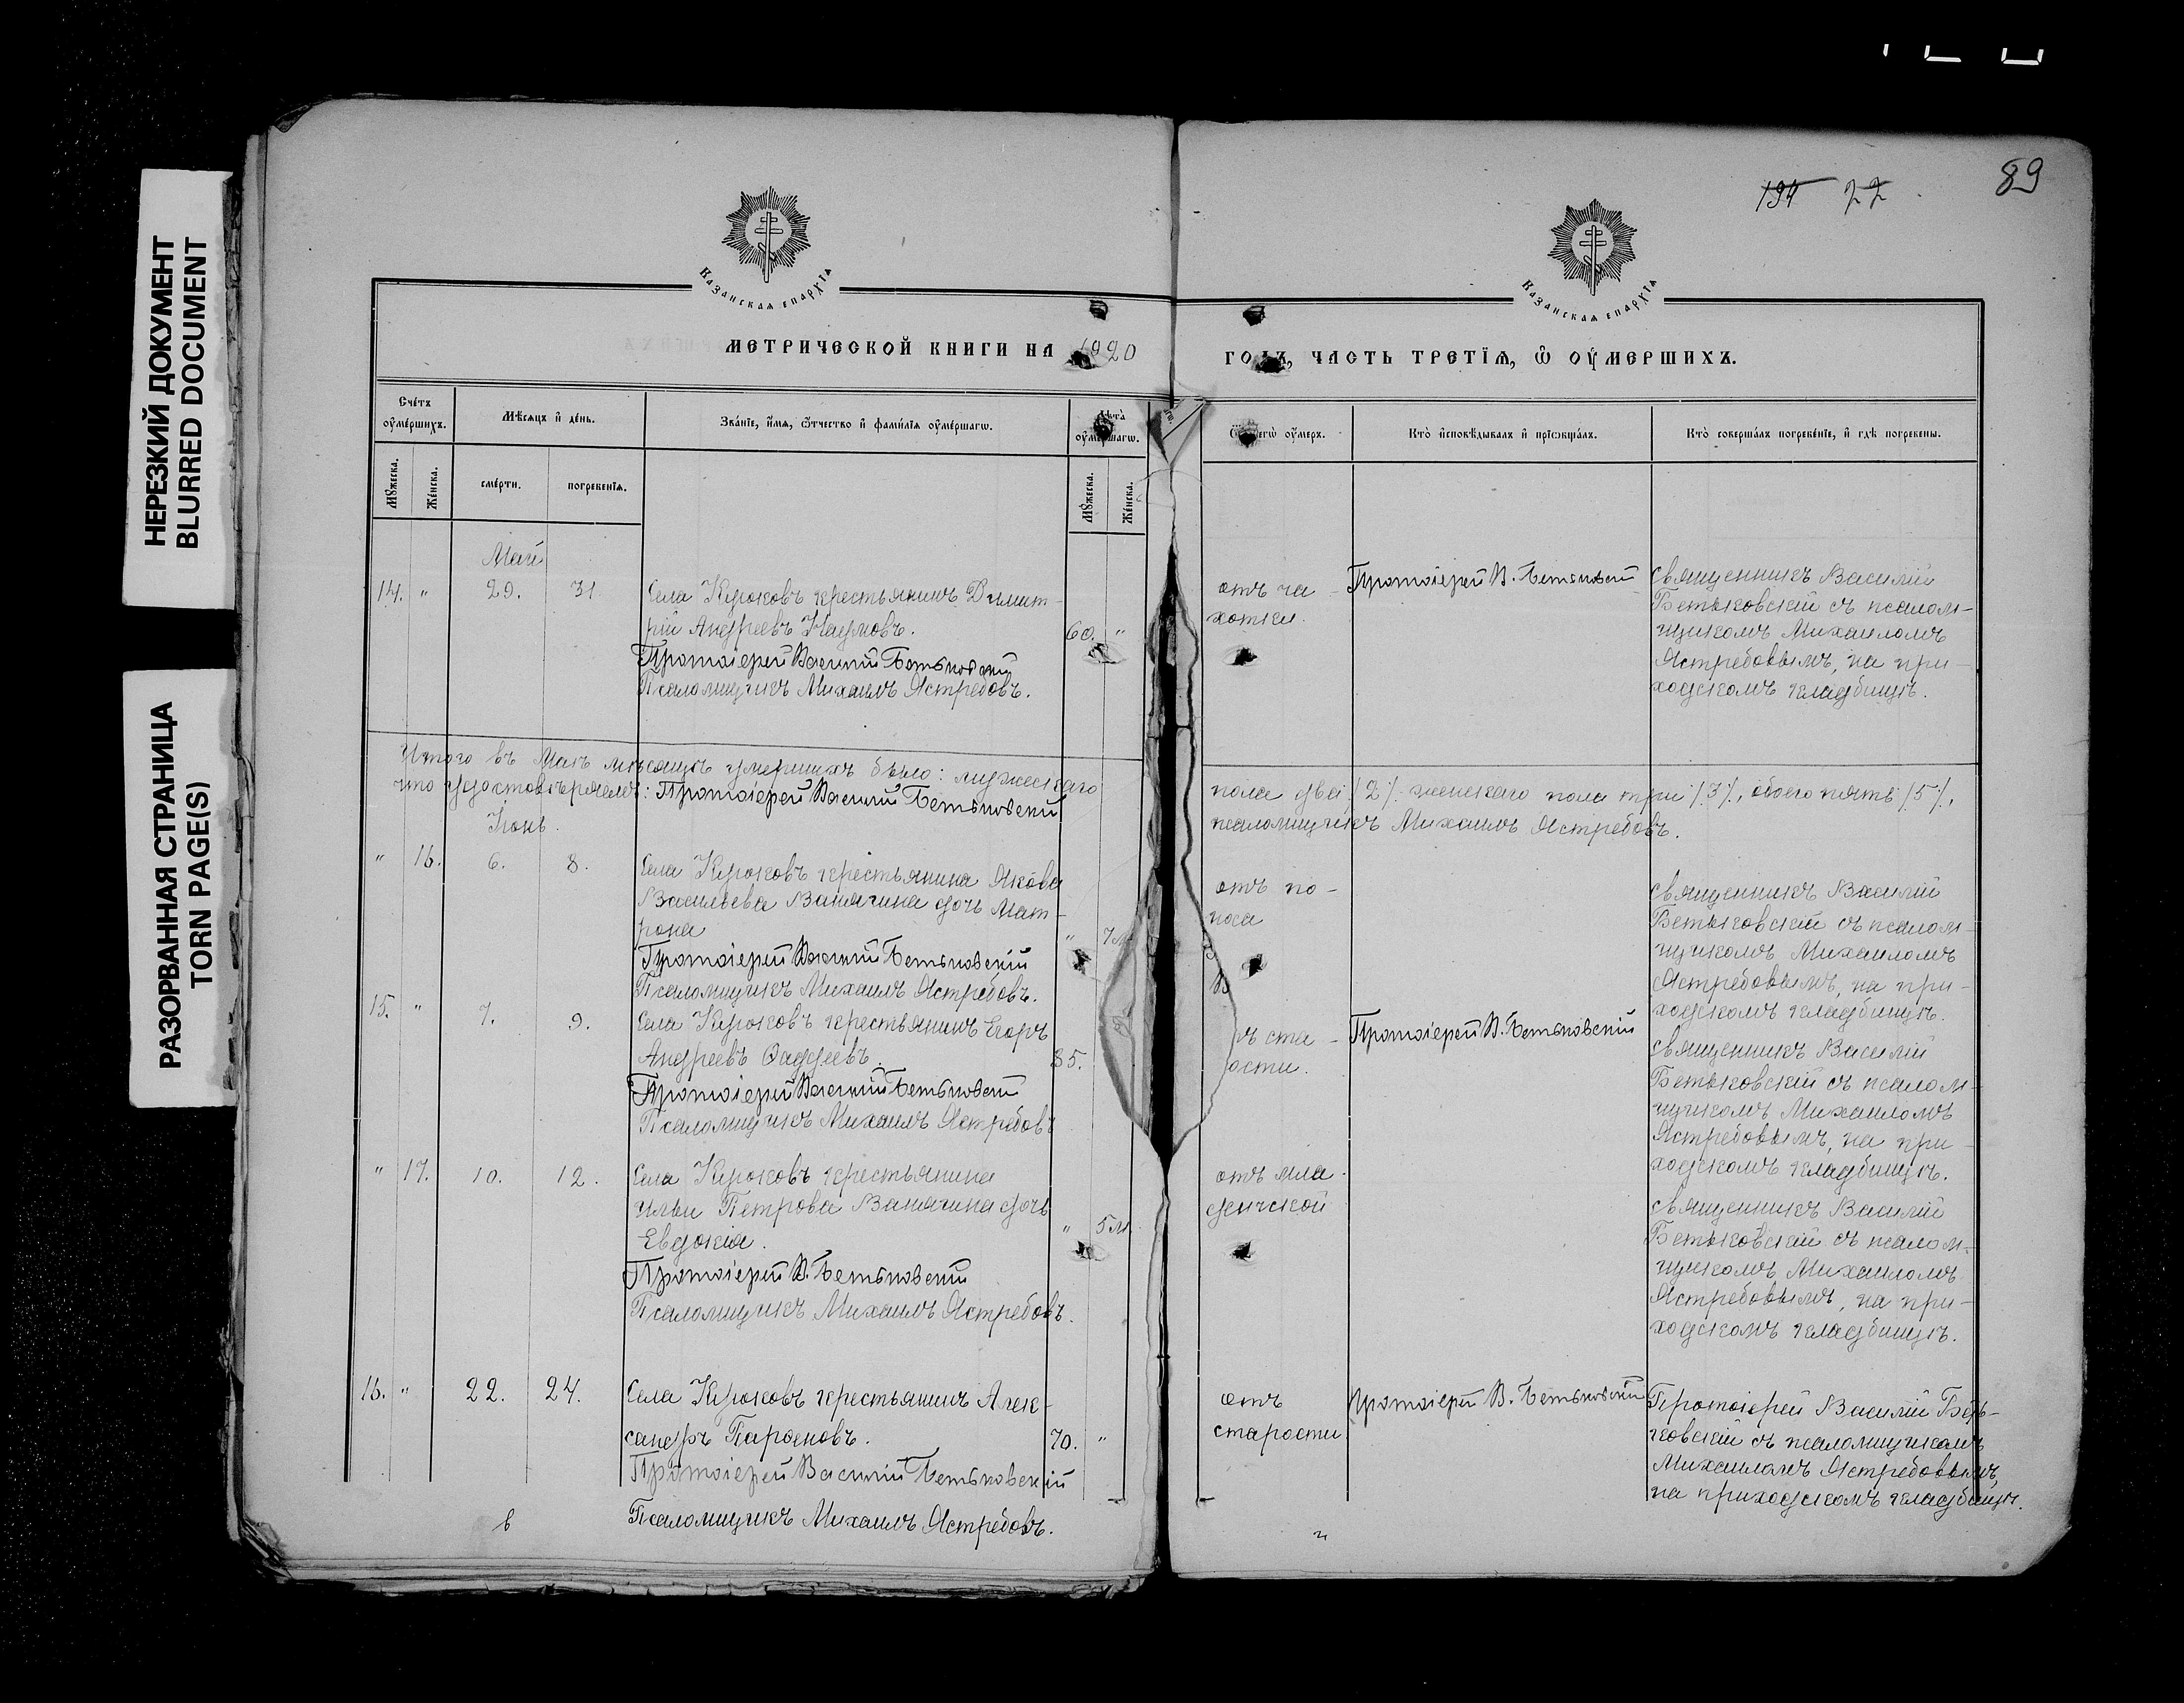 НЕРЕЗКИЙ ДОКУМЕНТ
BLURRED DOCUMENT
РАЗОРВАННАЯ СТРАНИЦА
TORN PAGE(S)
194 22
89
Казанская Епархїѧ
Казанская Епархїѧ
МЕТРИЧЕСКОЙ КНИГИ НА 1920
ГОДЪ, ЧАСТЬ ТРЕТЇѦ, Ѿ ОУМЕРШИХЪ.
Счетъ оумершихъ.
Мѣсѧцъ и день.
Званїе, имѧ, ѿчество и фамилїѧ оумершагѡ.
Лѣта оумершагѡ.
Ѿ чегѡ оумеръ.
Кто исповѣдывалъ и прїѡбщалъ.
Кто совершалъ погребенїе, и гдѣ погребены.
Мꙋжеска.
Женска.
смерти.
погребенїѧ.
Мꙋжеска.
Женска.
Май
14. " 29. 31 Села Крюковъ крестьянинъ Димит-
рій Андреевъ Наумовъ. 60. "
Протоіерей Василій Бетьковскій
Псаломщикъ Михаилъ Ястребовъ.
отъ ча-
хотки.
Протоіерей В. Бетьковскій
священникъ Василій
Бетьковскій съ псалом-
щикомъ Михаиломъ
Ястребовымъ, на при-
ходскомъ кладбищѣ.
Итого въ Маѣ мѣсяцѣ умершихъ было: мужескаго
пола два /2/. женскаго пола три /3/, обоего пять /5/,
что удостовѣряемъ: Протоіерей Василій Бетьковскій
псаломщикъ Михаилъ Ястребовъ.
Іюнь.
" 16. 6. 8. Села Крюковъ крестьянина Якова
Васильева Ванягина дочь Мат-
рона " 7 м.
Протоіерей Василій Бетьковскій
Псаломщикъ Михаилъ Ястребовъ.
отъ по-
носа
священникъ Василій
Бетьковскій съ псалом-
щикомъ Михаиломъ
Ястребовымъ, на при-
ходскомъ кладбищѣ.
15. " 7. 9. Села Крюковъ крестьянинъ Егоръ
Андреевъ Фаддеевъ. 85.
Протоіерей Василій Бетьковскій
Псаломщикъ Михаилъ Ястребовъ
ъ ста-
ости.
Протоіерей В. Бетьковскій
священникъ Василій
Бетьковскій съ псалом-
щикомъ Михаиломъ
Ястребовымъ, на при-
ходскомъ кладбищѣ.
" 17. 10. 12. Села Крюковъ крестьянина
Ильи Петрова Ванягина дочь
Евдокія. " 5 м.
Протоіерей В. Бетьковскій
Псаломщикъ Михаилъ Ястребовъ.
отъ мла-
денческой
священникъ Василій
Бетьковскій съ псалом-
щикомъ Михаиломъ
Ястребовымъ, на при-
ходскомъ кладбищѣ.
16. " 22. 24. Села Крюковъ крестьянинъ Алек-
сандръ Парѳеновъ. 70. "
Протоіерей Василій Бетьковскій
Псаломщикъ Михаилъ Ястребовъ.
отъ
старости
Протоіерей В. Бетьковскій
Протоіерей Василій Беть-
ковскій съ псаломщикомъ
Михаиломъ Ястребовымъ,
на приходскомъ кладбищѣ.